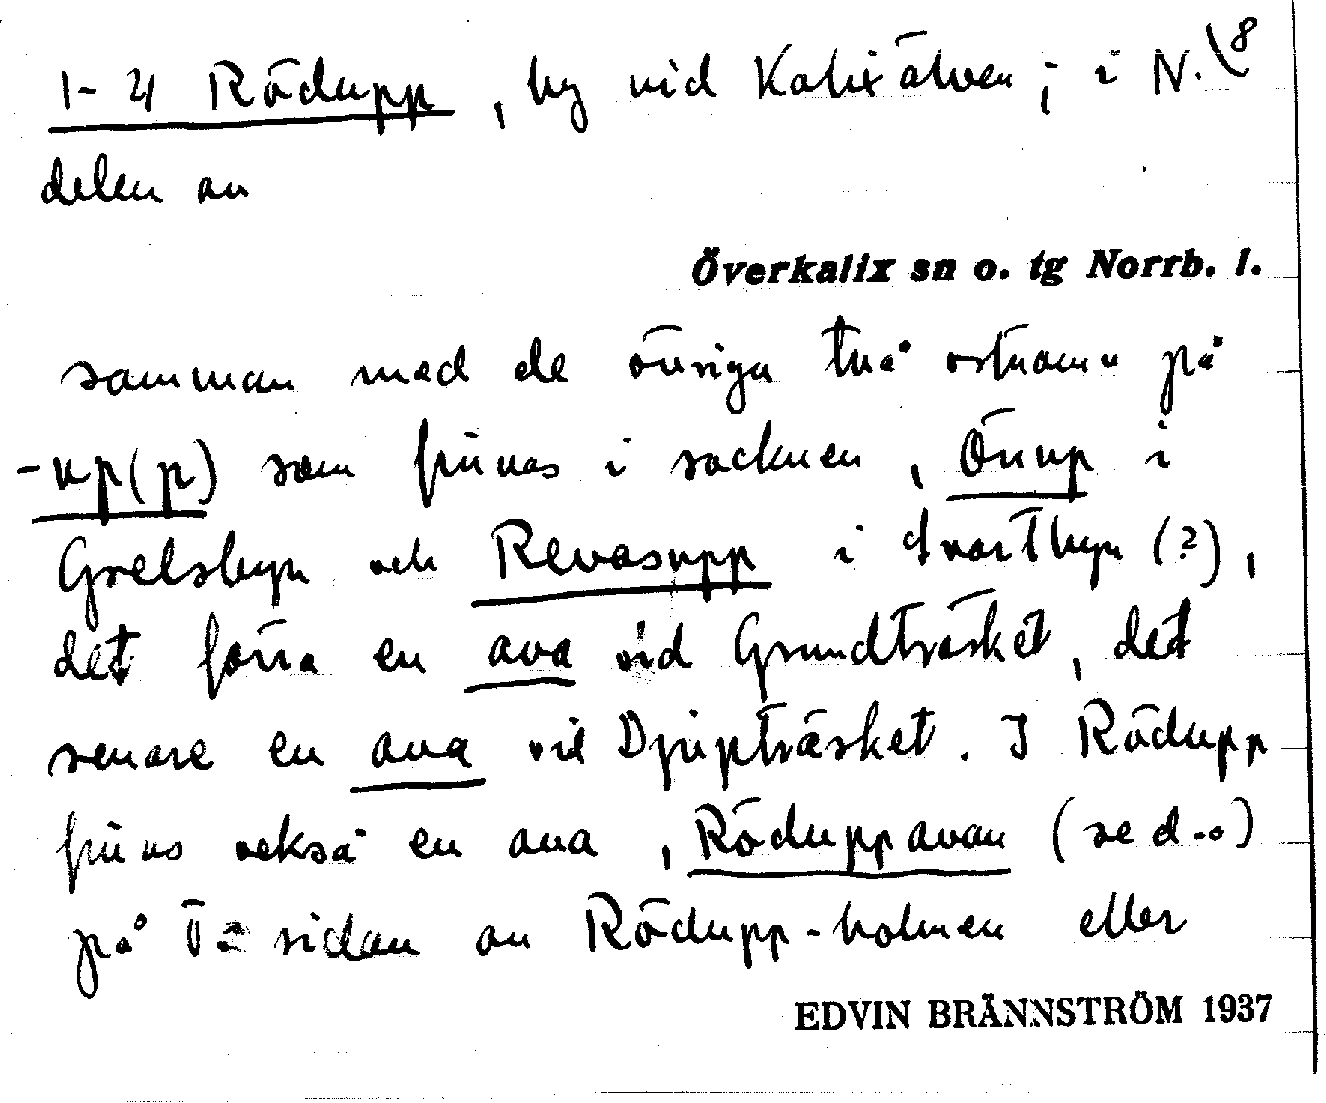 1-4 Rödupp, by vid Kalixälven; i N. 8
delen av
Överkalix sn o. tg Norrb. l.
samman med de övriga två ortnamn på
-up(p) som finnas i socknen, Övup i
Grelsbyn och Revasupp i Svartbyn (?),
det förra en ava vid Grundträsket, det
senare en ava vid Djupträsket. I Rödupp
finns också en ava, Röduppavan (se d.o)
på Ö sidan av Rödupp-holmen eller
EDVIN BRÄNNSTRÖM 1937